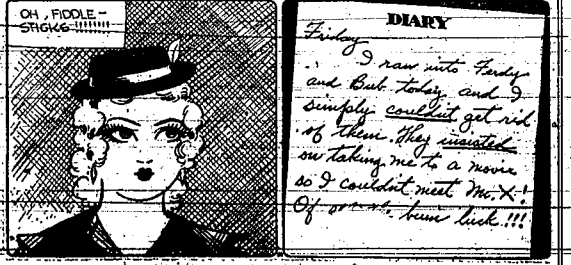 OH, FIDDLE-
STICKS !!!!!!!!
DIARY
Friday
I ran into Ferdy
and Bub today and I
simply couldn't get rid
of them. They insisted
on taking me to a movie
so I couldn't meet Mr. X!
Of bum luck!!!